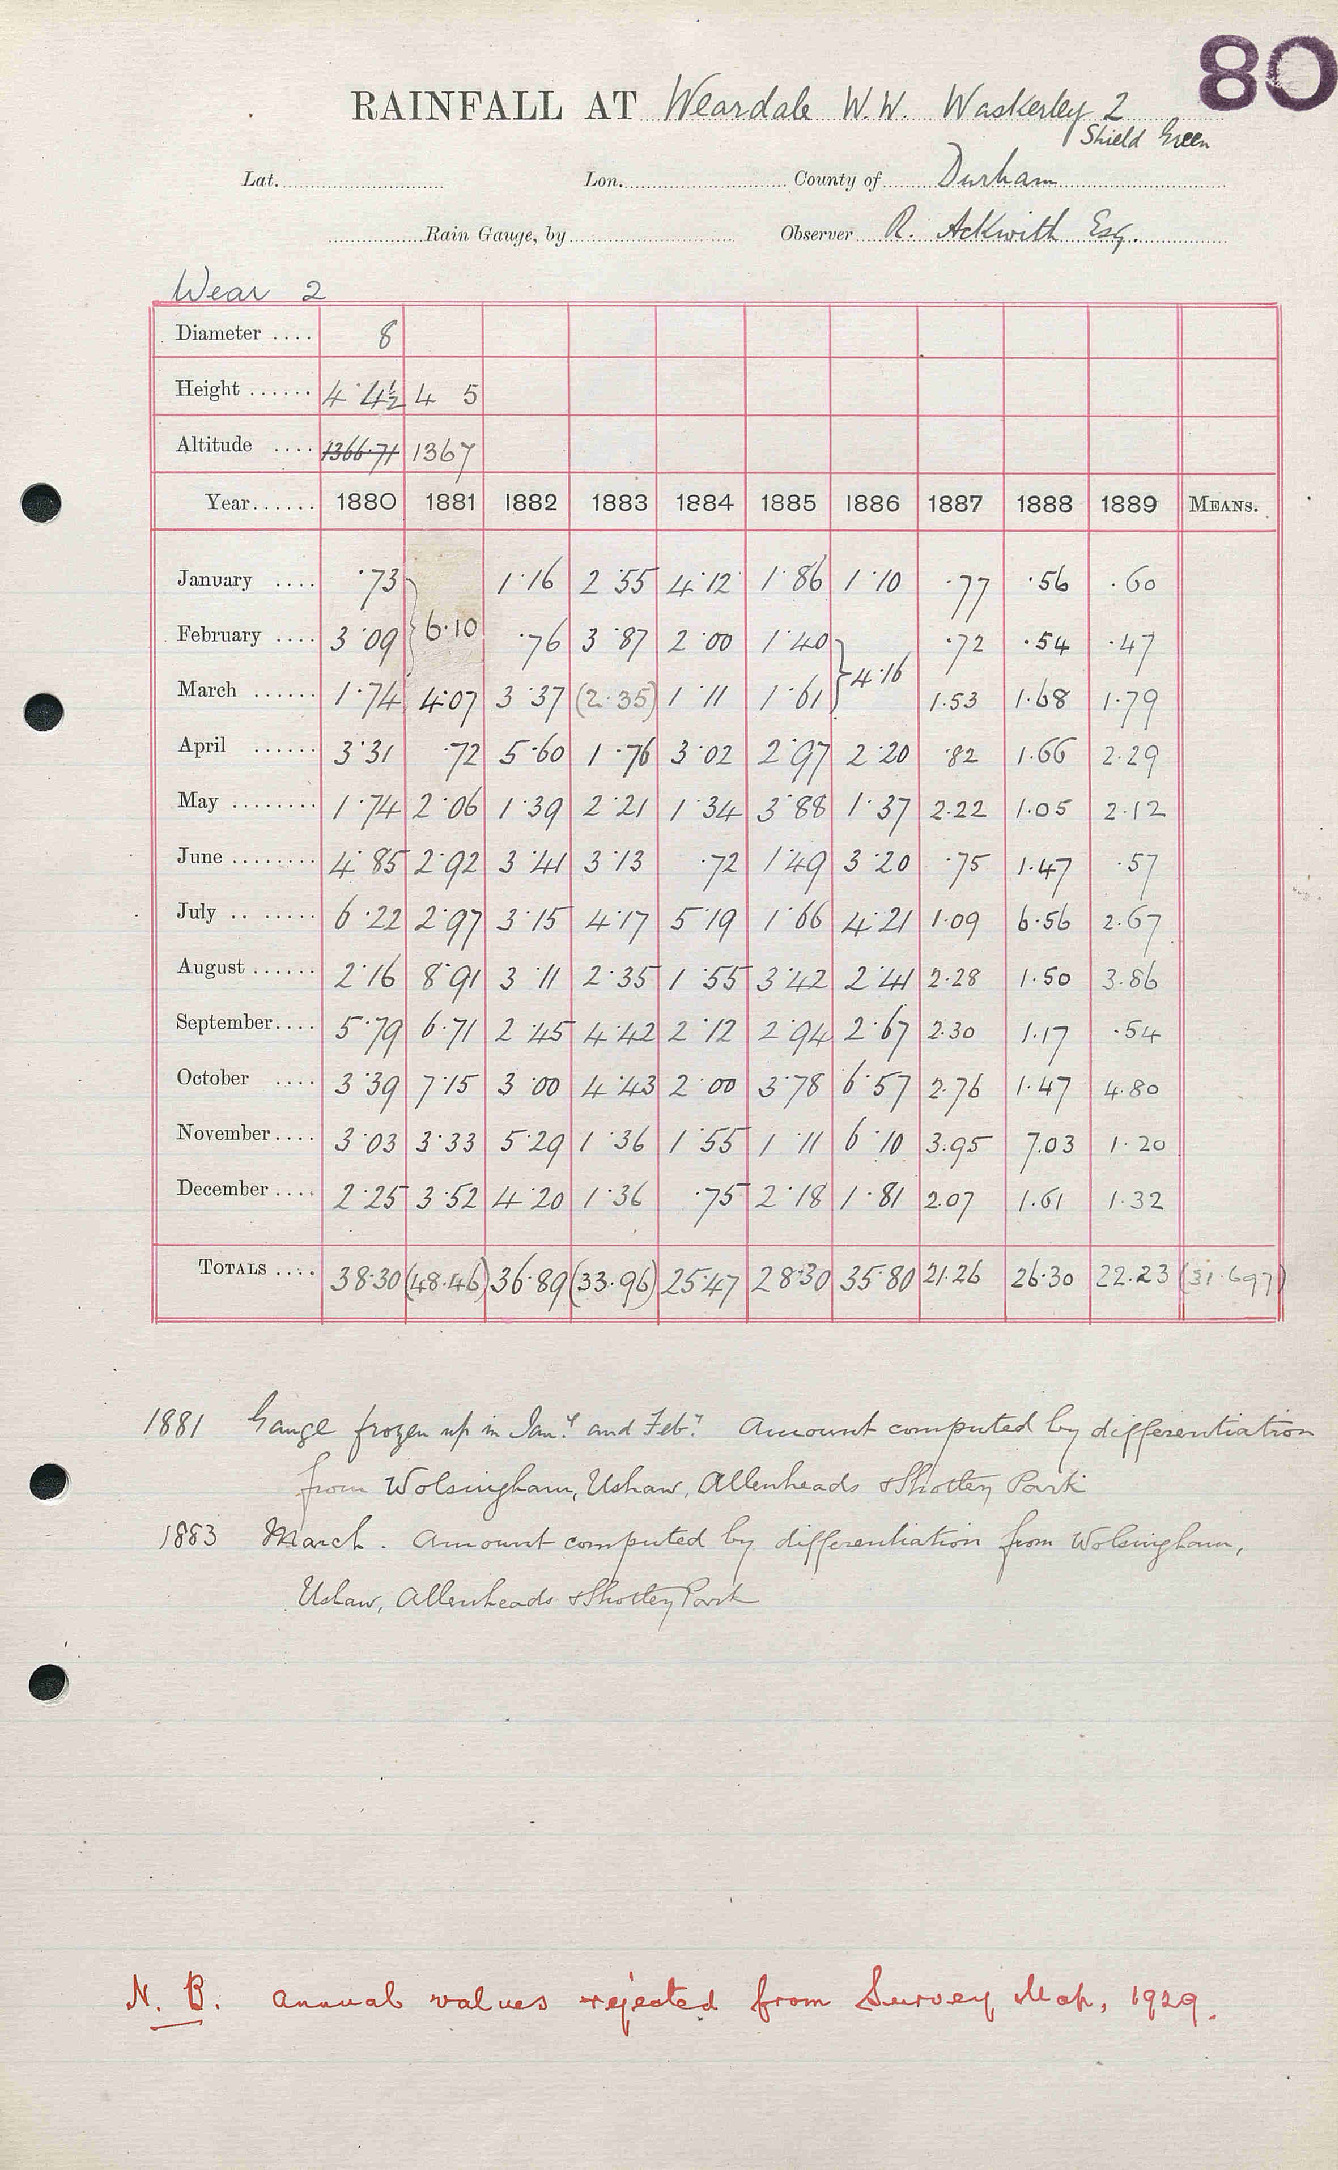 80
RAINFALL AT Weardale W.W. Waskerley 2
Shield Green
Lat. Lon. County of Durham
Rain Gauge, by Observer R. Ackwith Esq.
Wear 2
Diameter .... 8
Height ...... 4 4½ 4 5
Altitude .... 1366.71 1367
Year...... 1880 1881 1882 1883 1884 1885 1886 1887 1888 1889 MEANS.
January .... .73 1.16 2.55 4.12 1.86 1.10 .77 .56 .60
February .... 3.09 } 6.10 .76 3.87 2.00 1.40 .72 .54 .47
March ...... 1.74 4.07 3.37 (2.35) 1.11 1.61 } 4.16 1.53 1.68 1.79
April ...... 3.31 .72 5.60 1.76 3.02 2.97 2.20 .82 1.66 2.29
May ........ 1.74 2.06 1.39 2.21 1.34 3.88 1.37 2.22 1.05 2.12
June ........ 4.85 2.92 3.41 3.13 .72 1.49 3.20 .75 1.47 .57
July .. ...... 6.22 2.97 3.15 4.17 5.19 1.66 4.21 1.09 6.56 2.67
August ...... 2.16 8.91 3.11 2.35 1.55 3.42 2.41 2.28 1.50 3.86
September.... 5.79 6.71 2.45 4.42 2.12 2.94 2.67 2.30 1.17 .54
October .... 3.39 7.15 3.00 4.43 2.00 3.78 6.57 2.76 1.47 4.80
November.... 3.03 3.33 5.29 1.36 1.55 1.11 6.10 3.95 7.03 1.20
December .... 2.25 3.52 4.20 1.36 .75 2.18 1.81 2.07 1.61 1.32
TOTALS .... 38.30 (48.46) 36.89 (33.96) 25.47 28.30 35.80 21.26 26.30 22.23 (31.697)
1881 Gauge frozen up in Jan.y and Feb.y Amount computed by differentiation
from Wolsingham, Ushaw, Allenheads & Shotley Park
1883 March. Amount computed by differentiation from Wolsingham,
Ushaw, Allenheads & Shotley Park
N.B. Annual values rejected from Survey Map, 1929.